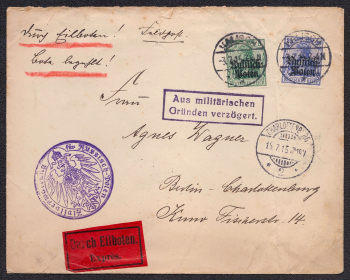 Durch Eilboten! Feldpost.
Bote bezahlt!
Russisch-
Polen
Russisch-
Polen
Aus militärischen
Gründen verzögert.
Frau
Agnes Wagner
Berlin-Charlottenburg
Kuno Fischerstr. 14.
CHARLOTTENBURG
15.7.15
Durch Eilboten.
Exprès.